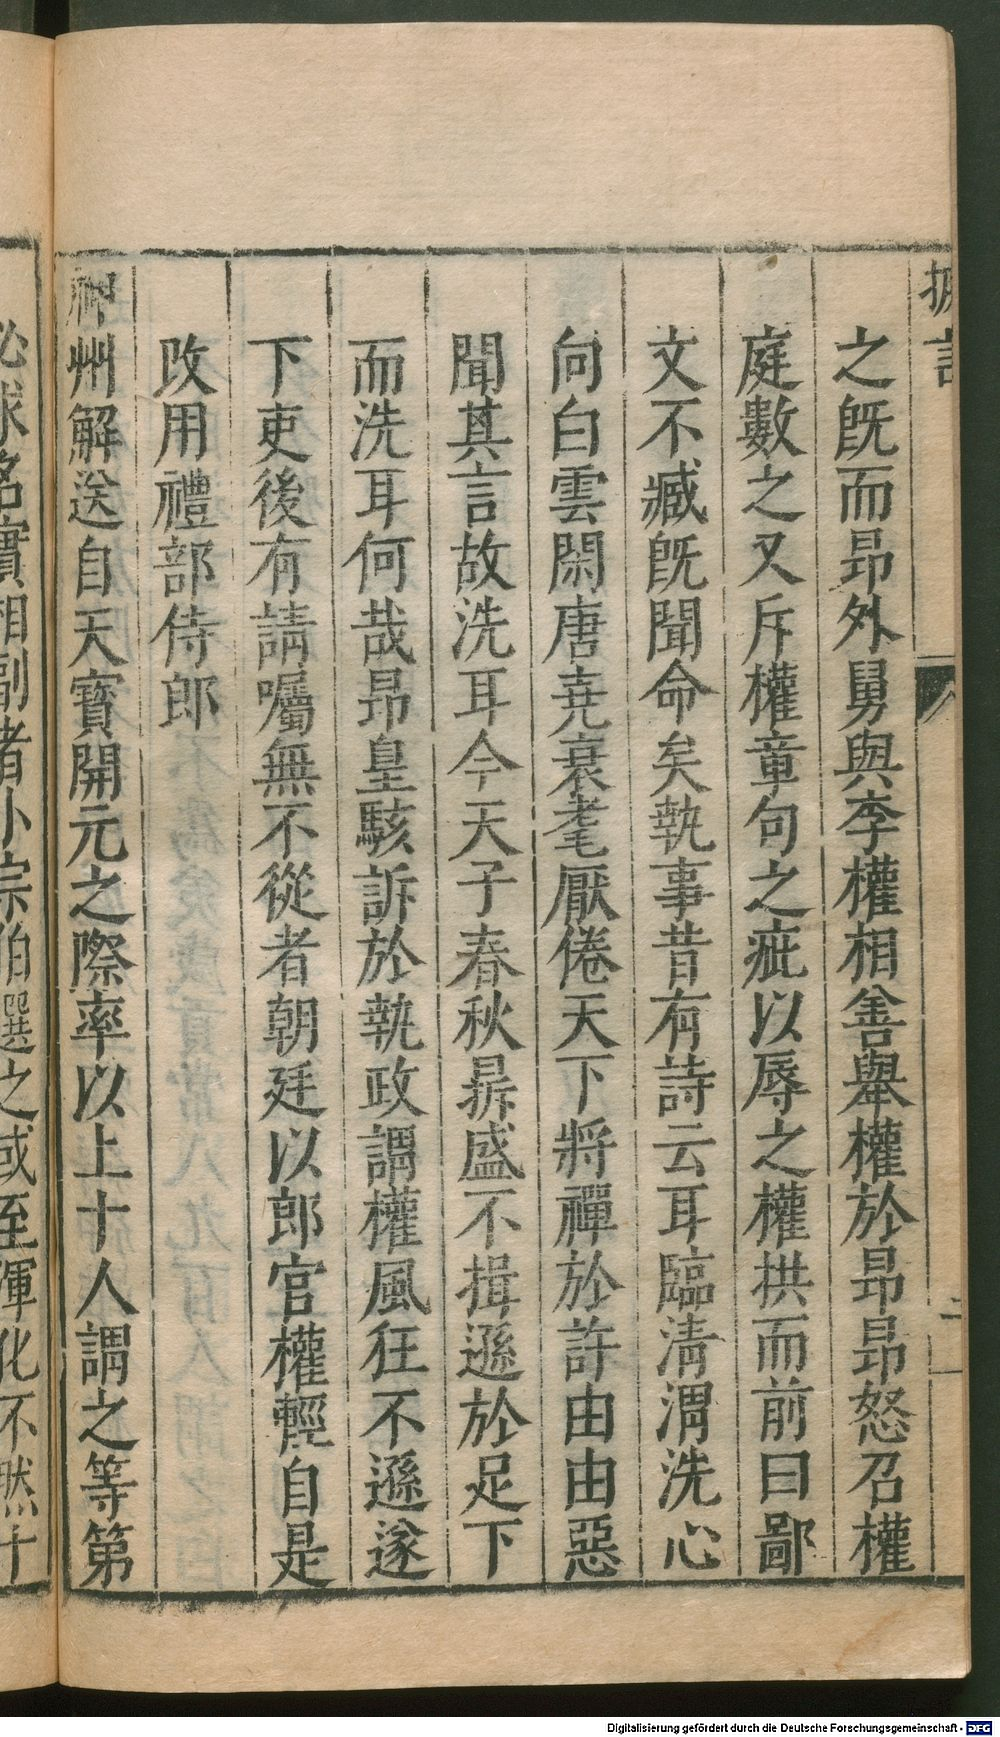 摭言
二
之既而昂外舅與李權相善舉權於昂昂怒召權
庭數之又斥權章句之疵以辱之權拱而前曰鄙
文不臧既聞命矣執事昔有詩云耳臨清渭洗心
向白雲閑唐堯衰耄厭倦天下將禪於許由由惡
聞其言故洗耳今天子春秋鼎盛不揖遜於足下
而洗耳何哉昂皇駭訴於執政謂權風狂不遜遂
下吏後有請囑無不從者朝廷以郎官權輕自是
改用禮部侍郎
神州解送自天寶開元之際率以上十人謂之等第
必求名實相副者小宗伯選之或至渾化不然十
Digitalisierung gefördert durch die Deutsche Forschungsgemeinschaft - DFG